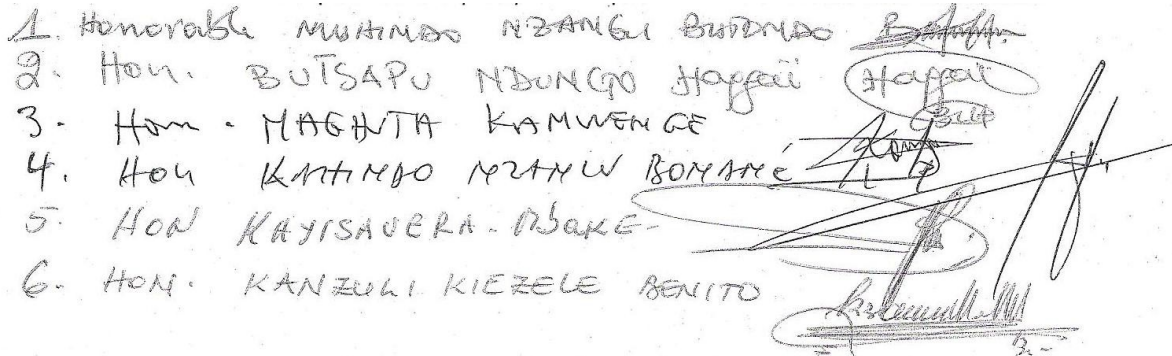 1. Honorable MUHINDO NZANGI BUTONDO
2. Hon. BUTSAPU NDUNGO Haggaï Haggaï
3. Hon. MAGHUTA KAMWENGE
4. Hon KAHINDO NZANW BONANé
5. HON KAYISAVERA
6. HON. KANZULI KIEZELE BENITO